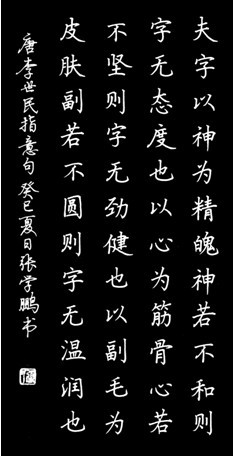 夫字以神为精魄神若不和则
字无态度也以心为筋骨心若
不坚则字无劲健也以副毛为
皮肤副若不圆则字无温润也
唐李世民指意句癸巳夏日张学鹏书